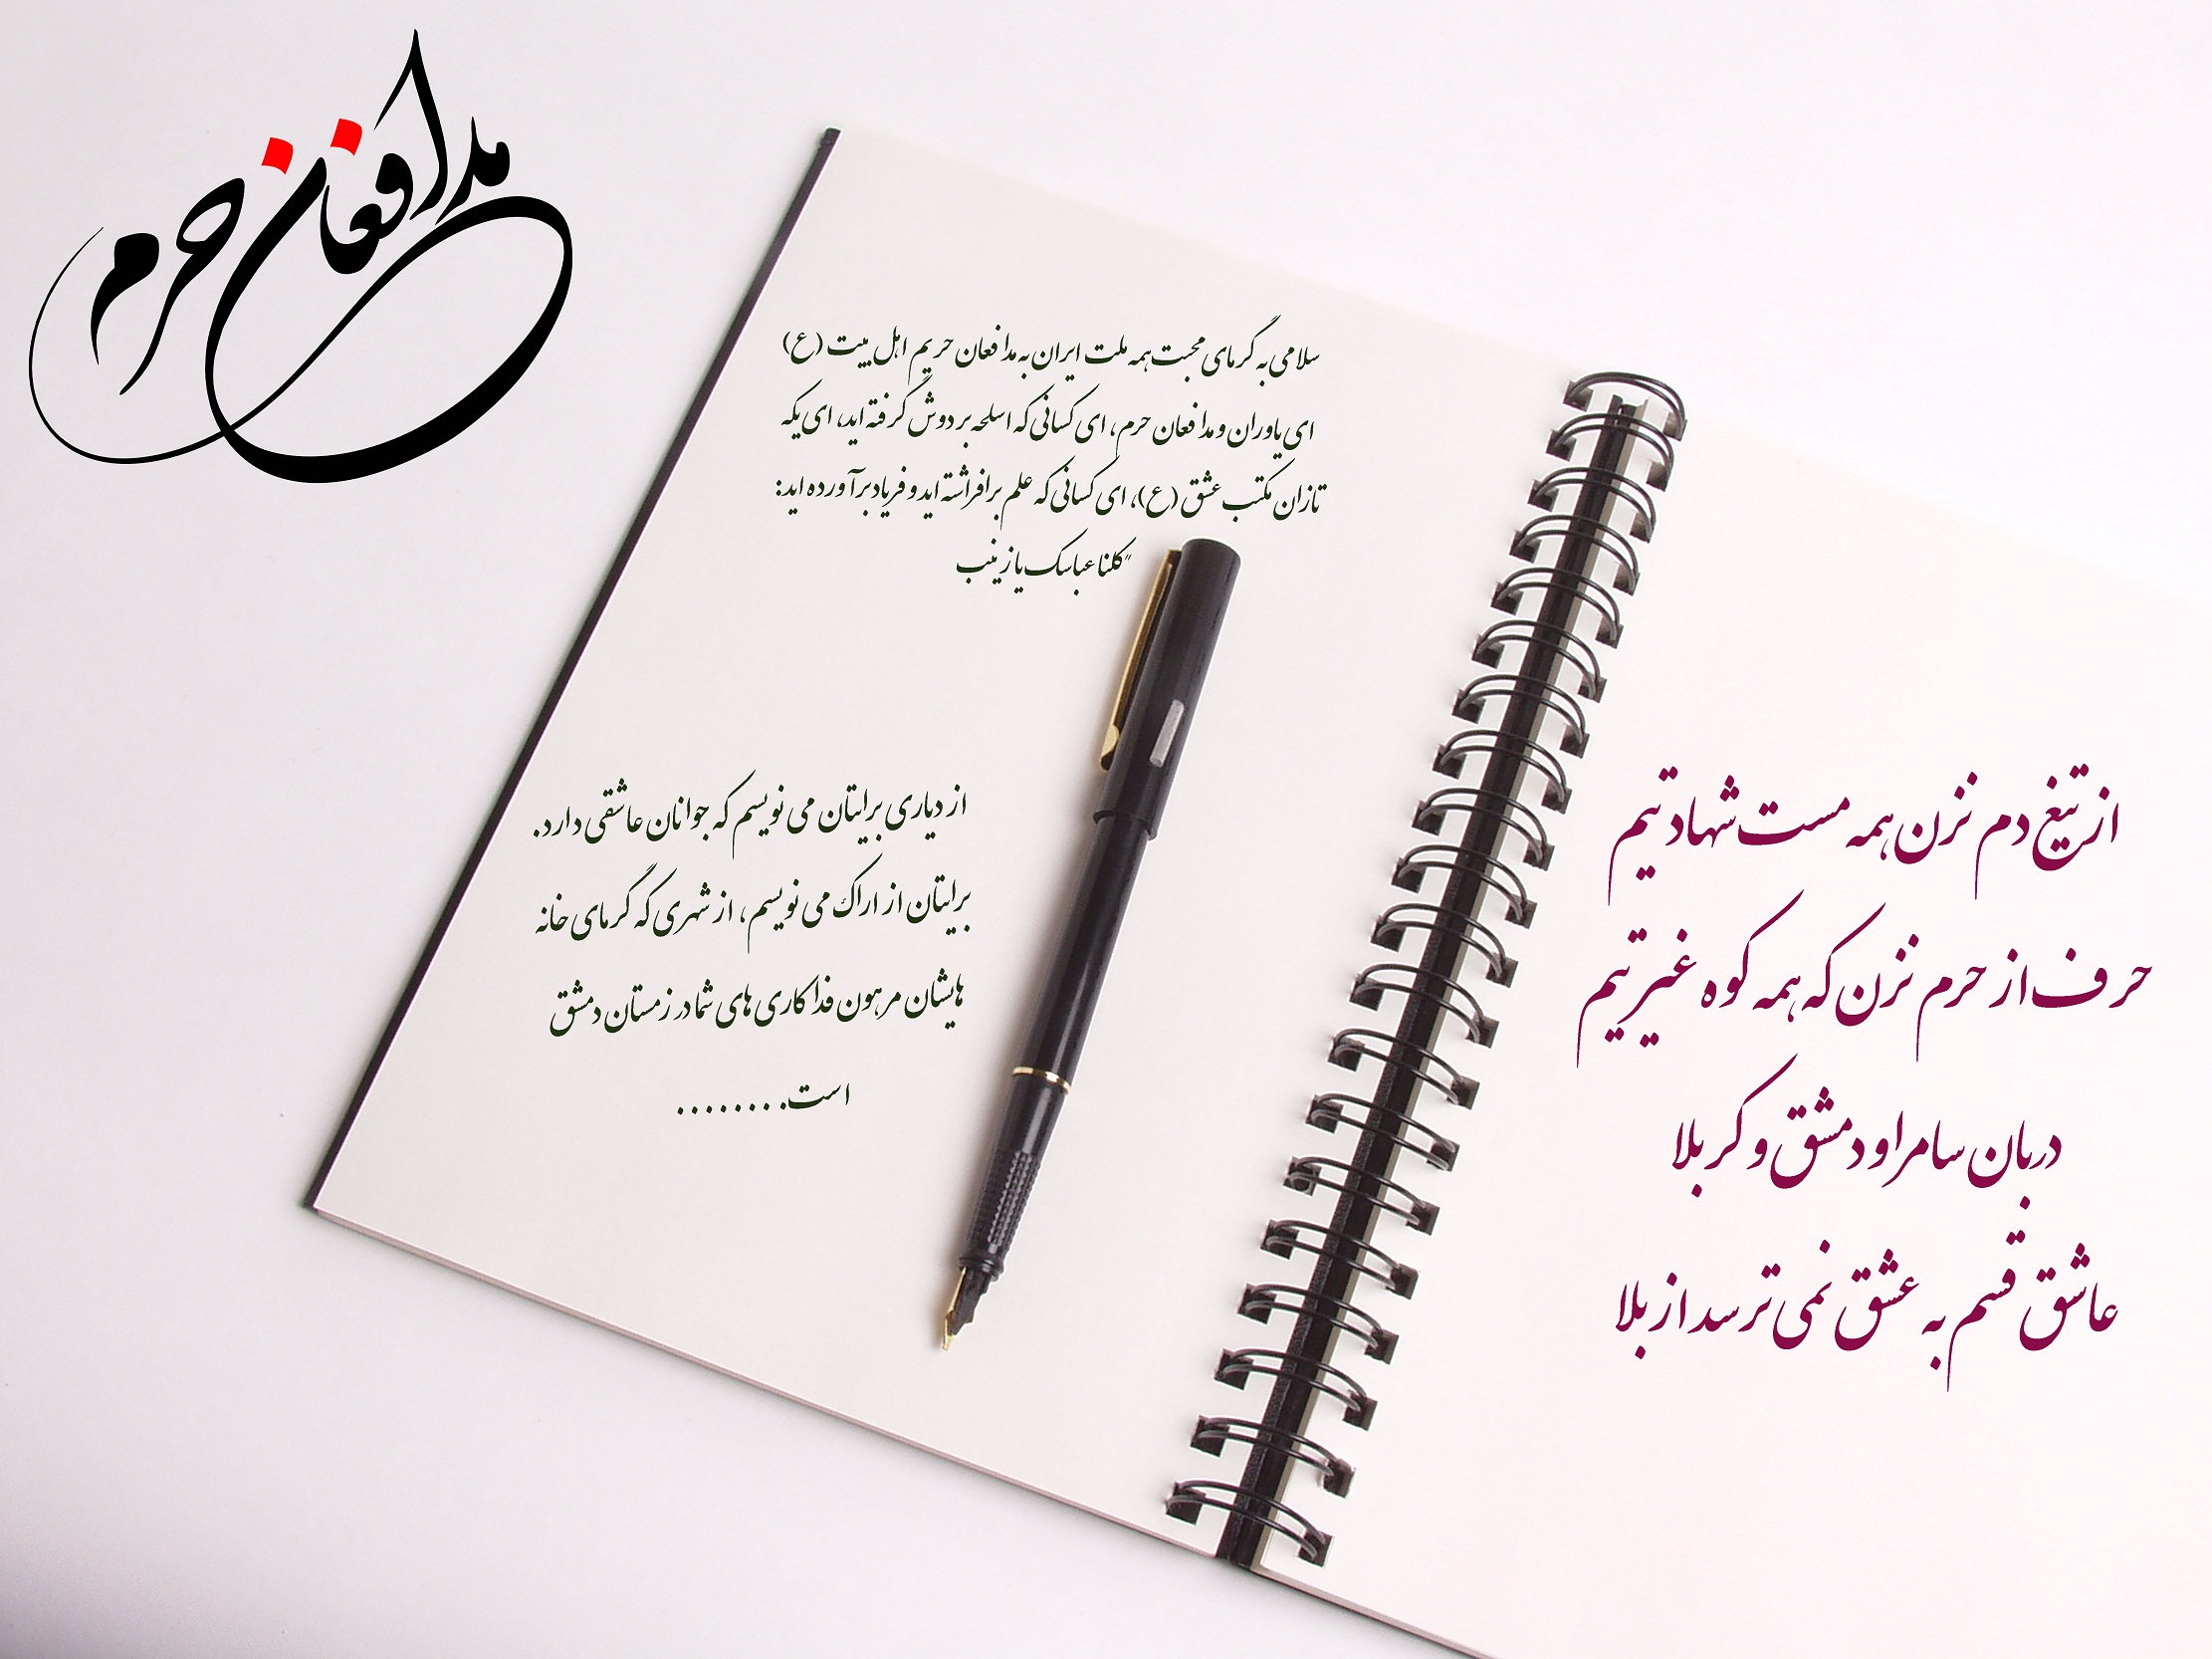 مدافعان حرم
سلامی به گرمای محبت همه ملت ایران به مدافعان حریم اهل بیت (ع)
ای یاوران و مدافعان حرم، ای کسانی که اسلحه بر دوش گرفته اید، ای یکه
تازان مکتب عشق (ع)، ای کسانی که علم برافراشته اید و فریاد برآورده اید:
"کلنا عباسک یا زینب
از دیاری برایتان می نویسم که جوانان عاشقی دارد.
برایتان از اراک می نویسم، از شهری که گرمای خانه
هایشان مرهون فداکاری های شما در زمستان دمشق
است........
از تیغ دم نزن همه مست شهادتیم
حرف از حرم نزن که همه کوه غیرتیم
دربان سامرا و دمشق و کربلا
عاشق قسم به عشق نمی ترسد از بلا